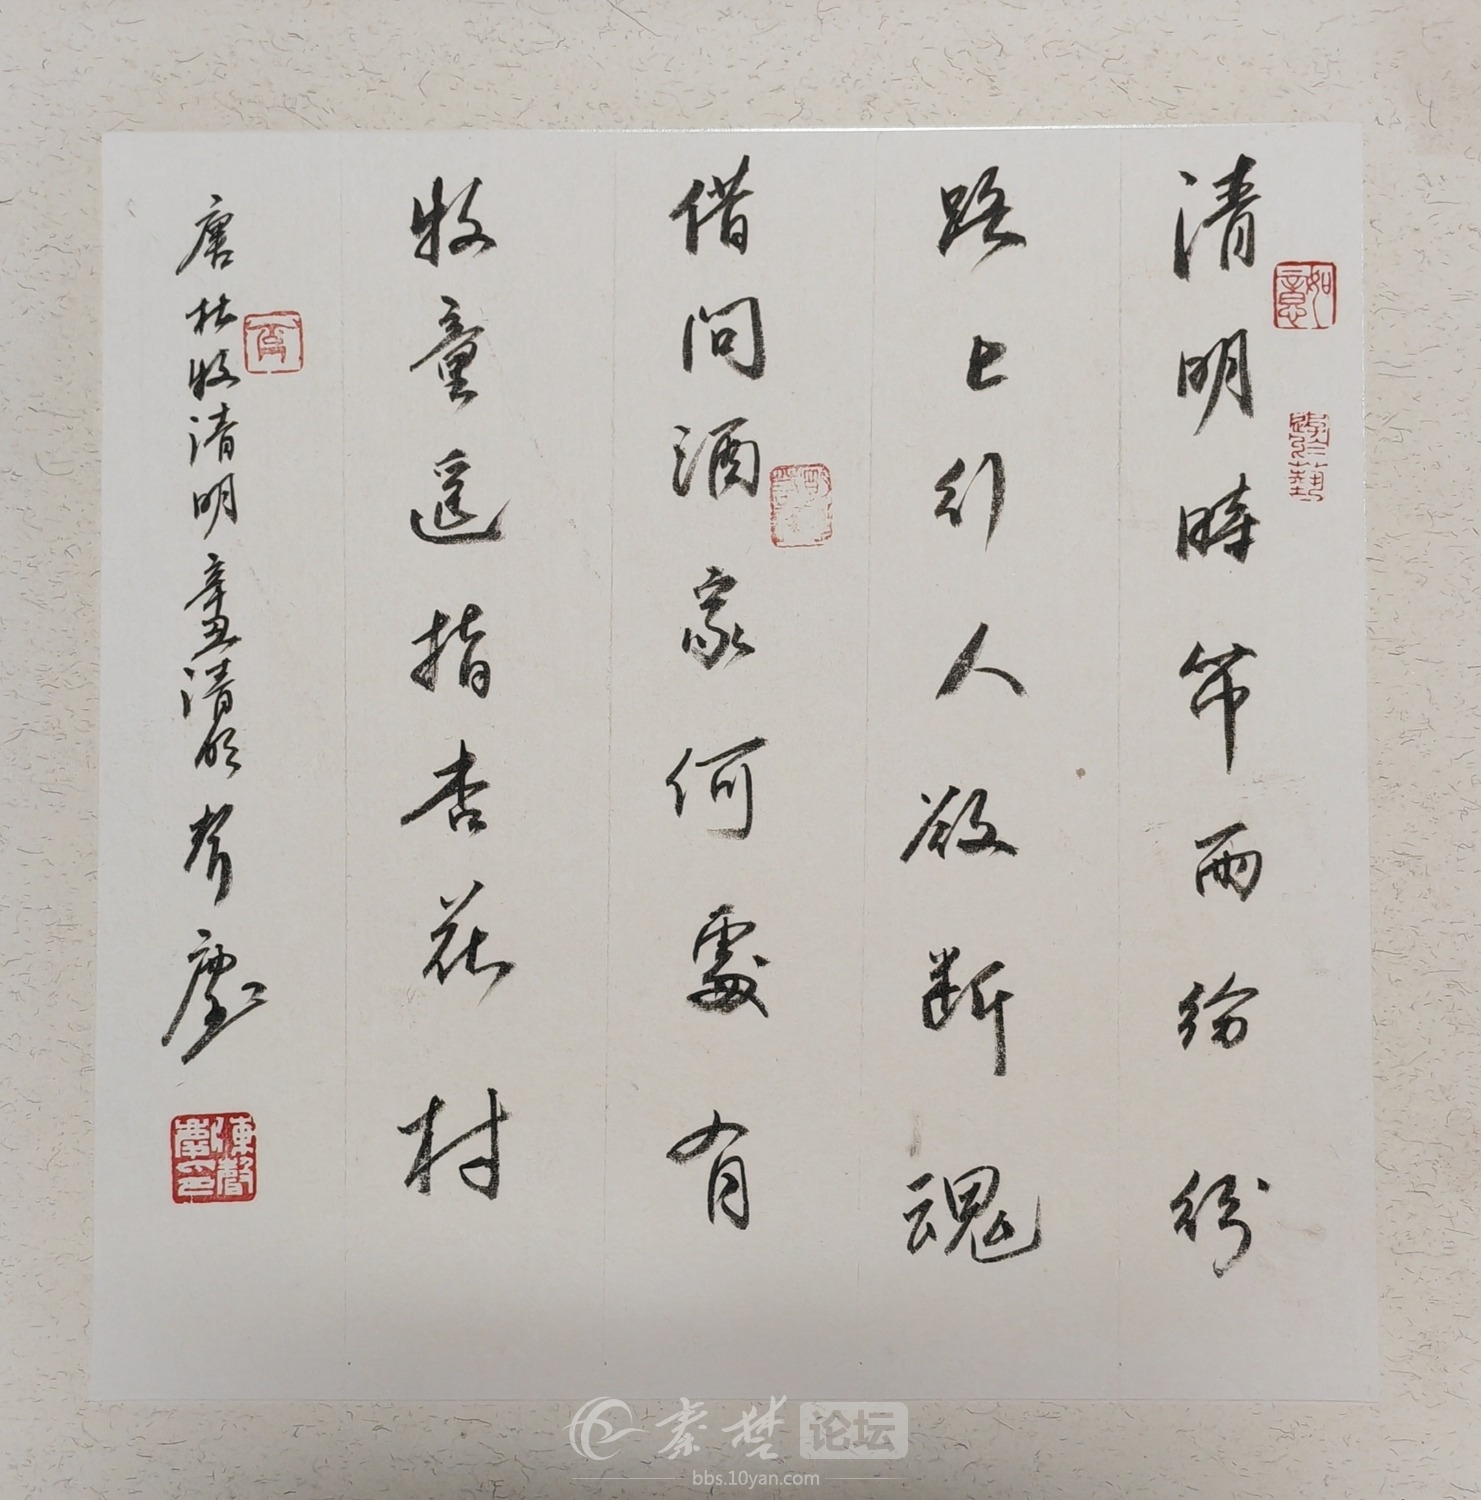 清明時節雨紛紛
路上行人欲断魂
借問酒家何處有
牧童遥指杏花村
唐杜牧清明辛丑清明
如意
游於藝
秦楚论坛
bbs.10yan.com